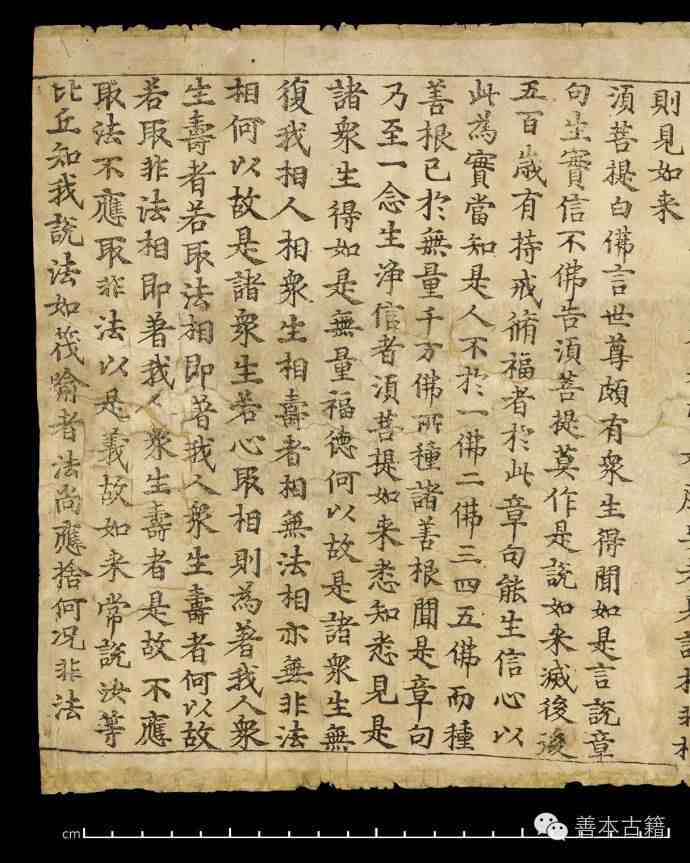 則見如来
湏菩提白佛言世尊頗有衆生得聞如是言說章
句生實信不佛告湏菩提莫作是說如来滅後後
五百歲有持戒脩福者於此章句能生信心以
此為實當知是人不於一佛二佛三四五佛而種
善根已於無量千万佛所種諸善根聞是章句
乃至一念生淨信者湏菩提如来悉知悉見是
諸衆生得如是無量福德何以故是諸衆生無
復我相人相衆生相壽者相無法相亦無非法
相何以故是諸衆生若心取相則為著我人衆
生壽者若取法相即著我人衆生壽者何以故
若取非法相即著我人衆生壽者是故不應
取法不應取非法以是義故如来常說汝等
比丘知我說法如筏喻者法尚應捨何况非法
cm
善本古籍